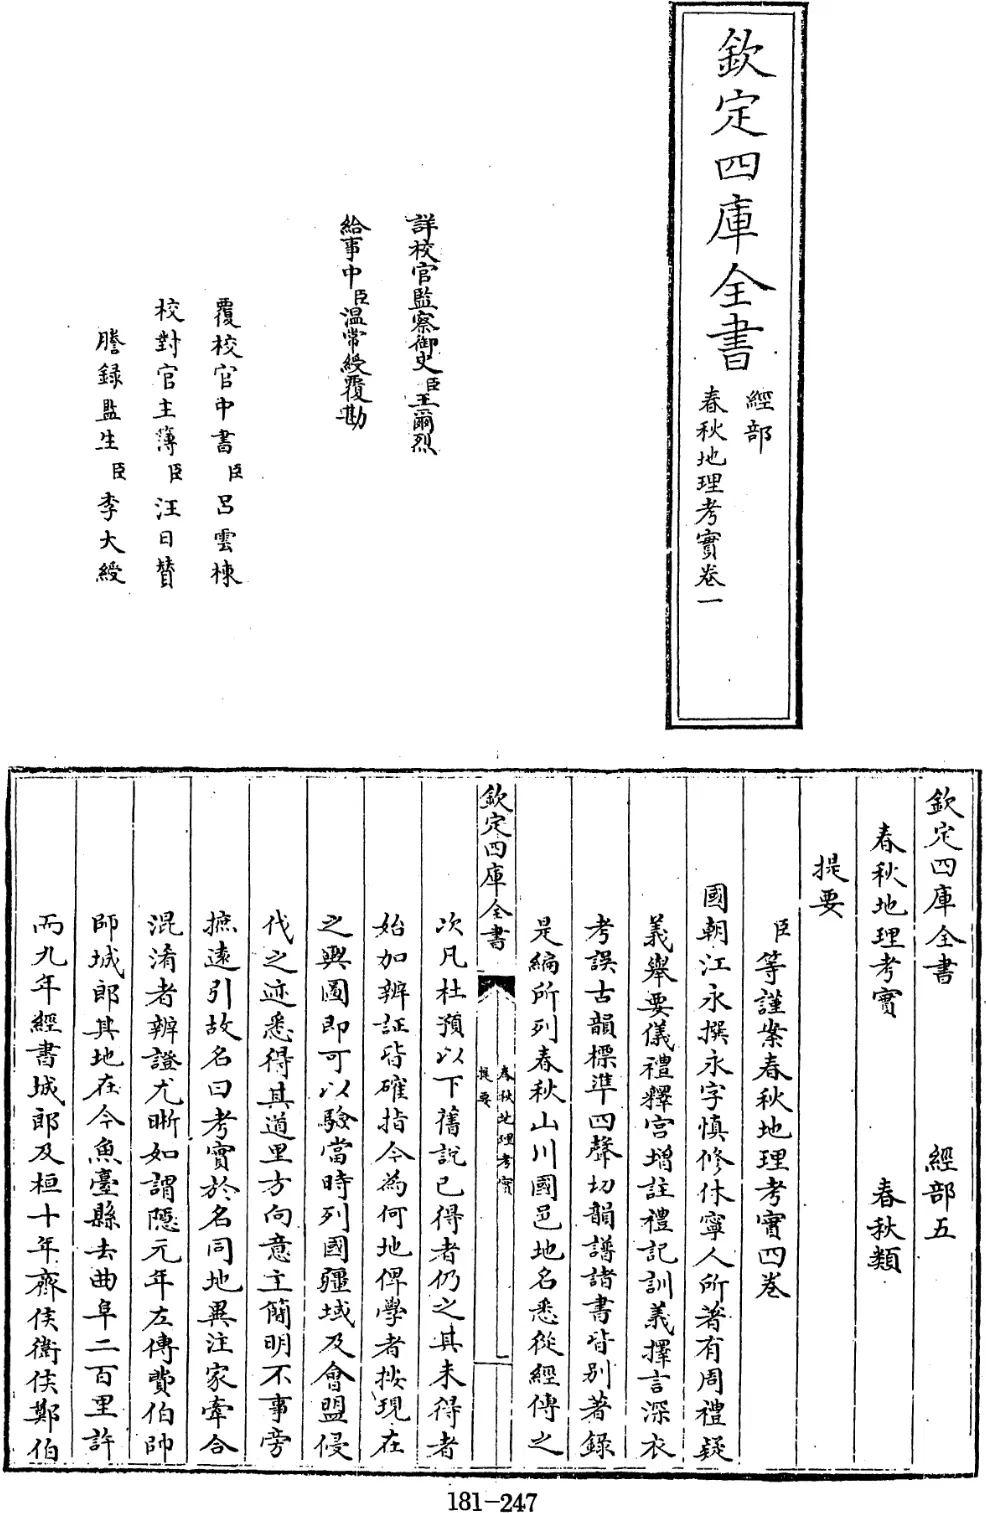 欽定四庫全書
經部
春秋地理考實卷一
詳校官監察御史臣王爾烈
給事中臣溫常綬覆勘
覆校官中書臣呂雲棟
校對官主簿臣汪日贊
謄錄監生臣李大綬
欽定四庫全書 經部五
春秋地理考實 春秋類
提要
臣等謹案春秋地理考實四卷
國朝江永撰永字慎修休寧人所著有周禮疑
義舉要儀禮釋宫增註禮記訓義擇言深衣
考誤古韻標準四聲切韻譜諸書皆别著錄
是編所列春秋山川國邑地名悉從經傳之
欽定四庫全書
春秋地理考實
提要
次凡杜預以下舊說已得者仍之其未得者
始加辨証皆確指今為何地俾學者按現在
之輿圖即可以驗當時列國疆域及會盟侵
伐之迹悉得其道里方向意主簡明不事旁
摭遠引故名曰考實於名同地異注家牽合
混淆者辨證尤晰如謂隱元年左傳費伯帥
師城郎其地在今魚臺縣去曲阜二百里許
而九年經書城郎及桓十年齊侯衞侯鄭伯
181-247